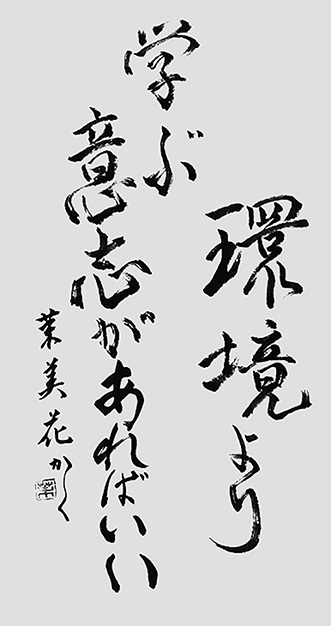 環境より
学ぶ
意志があればいい
茉美花かく